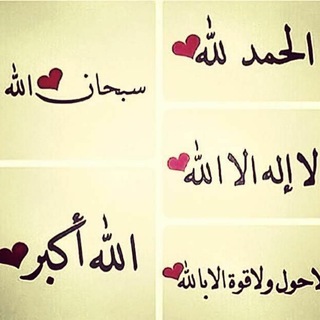 سبحان الله
الحمد لله
لا إله الا الله
الله أكبر
لاحول ولا قوة الا بالله